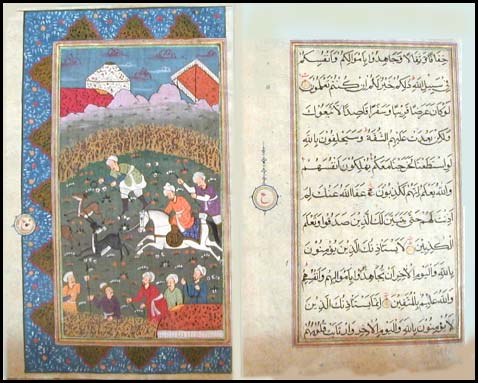 خِفَافًا وَثِقَالًا وَجَاهِدُوا بِأَمْوَالِكُمْ وَأَنْفُسِكُمْ
فِي سَبِيلِ اللَّهِ ذَلِكُمْ خَيْرٌ لَكُمْ إِنْ كُنْتُمْ تَعْلَمُونَ
لَوْ كَانَ عَرَضًا قَرِيبًا وَسَفَرًا قَاصِدًا لَاتَّبَعُوكَ
وَلَكِنْ بَعُدَتْ عَلَيْهِمُ الشُّقَّةُ وَسَيَحْلِفُونَ بِاللَّهِ
لَوِ اسْتَطَعْنَا لَخَرَجْنَا مَعَكُمْ يُهْلِكُونَ أَنْفُسَهُمْ
وَاللَّهُ يَعْلَمُ إِنَّهُمْ لَكَاذِبُونَ عَفَا اللَّهُ عَنْكَ لِمَ
أَذِنْتَ لَهُمْ حَتَّى يَتَبَيَّنَ لَكَ الَّذِينَ صَدَقُوا وَتَعْلَمَ
الْكَاذِبِينَ لَا يَسْتَأْذِنُكَ الَّذِينَ يُؤْمِنُونَ
بِاللَّهِ وَالْيَوْمِ الْآخِرِ أَنْ يُجَاهِدُوا بِأَمْوَالِهِمْ وَأَنْفُسِهِمْ
وَاللَّهُ عَلِيمٌ بِالْمُتَّقِينَ إِنَّمَا يَسْتَأْذِنُكَ الَّذِينَ
لَا يُؤْمِنُونَ بِاللَّهِ وَالْيَوْمِ الْآخِرِ وَارْتَابَتْ قُلُوبُهُمْ